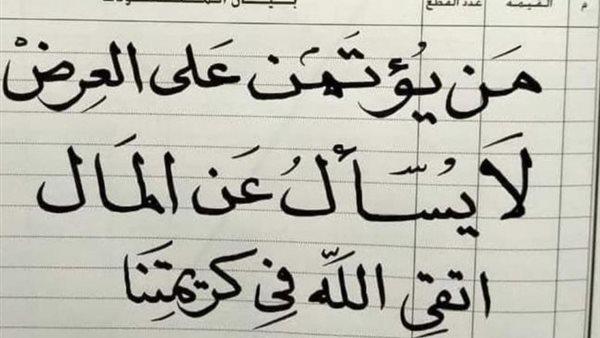 م القيمة عدد القطع بيان
مَن يُؤتَمَن عَلى العِرِضْ
لَا يُسّأَلُ عَن المَال
اتقيِ اللَّه فيِ كريمتِنَا